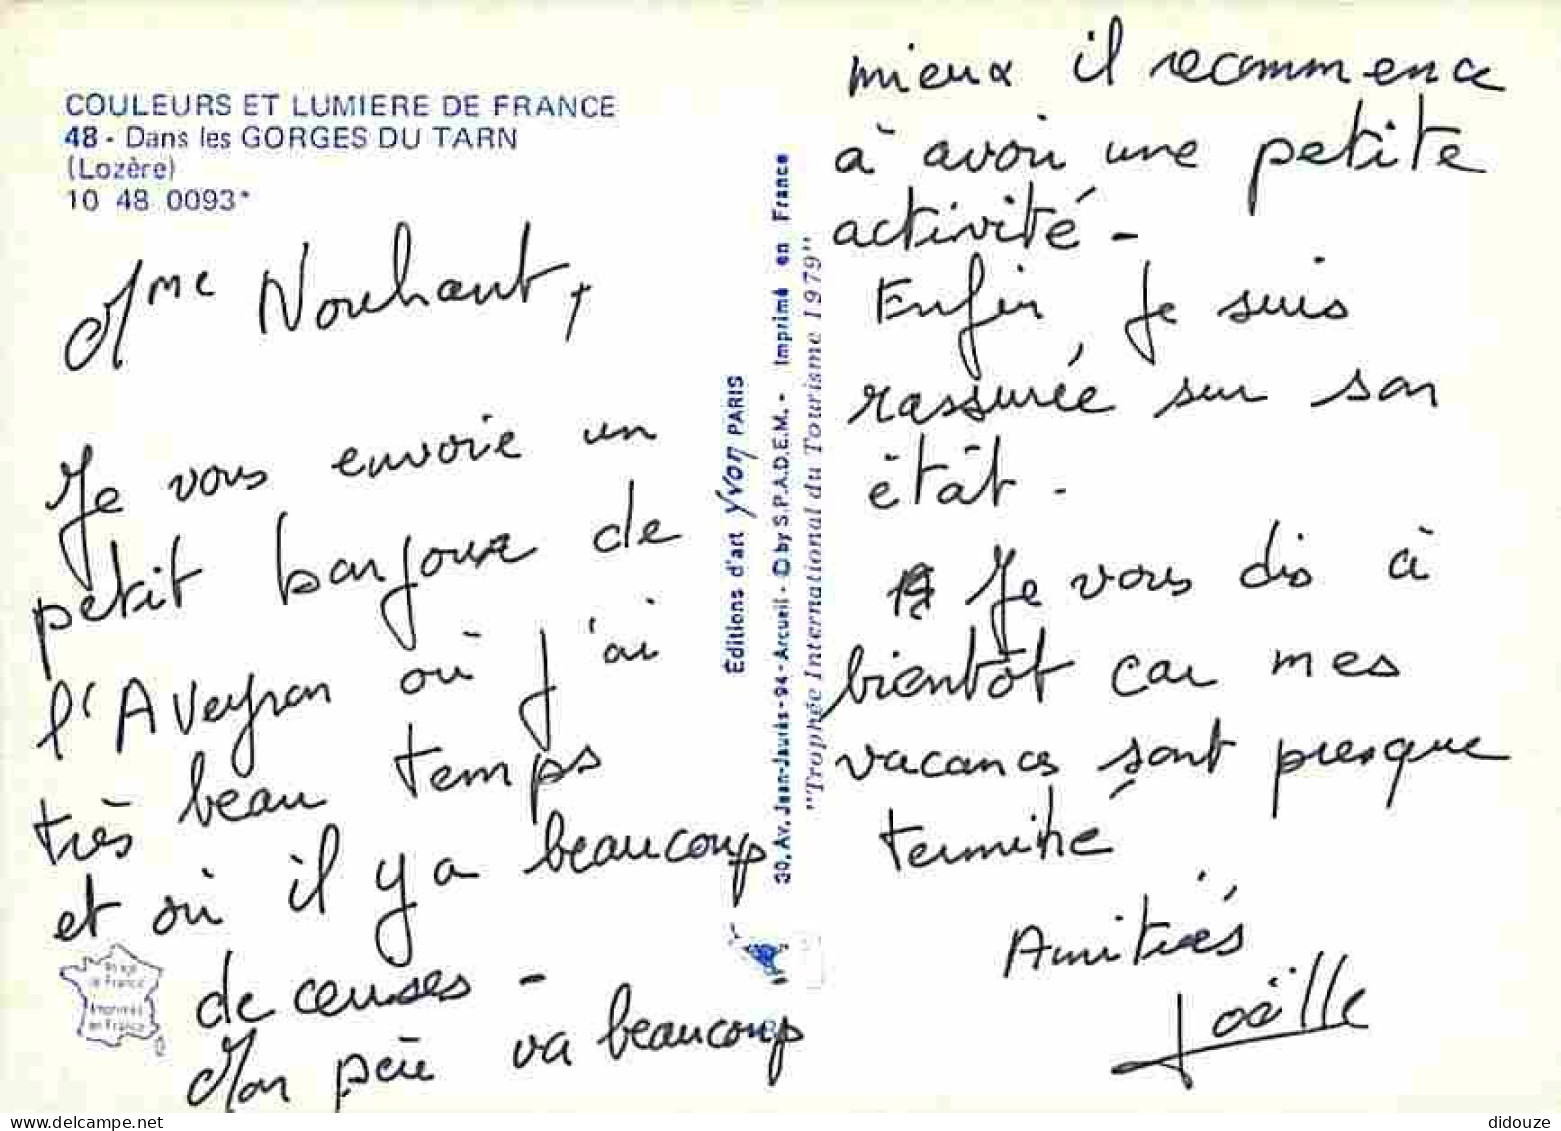 COULEURS ET LUMIERE DE FRANCE
48 - Dans les GORGES DU TARN
(Lozère)
10 48 0093*
Mme Nouhaut,
Je vous envoie un
petit bonjour de
l'Aveyron où j'ai
très beau temps
et où il y a beaucoup
de cerises -
Mon père va beaucoup
mieux il recommence
à avoir une petite
activité -
Enfin je suis
rassurée sur son
état -
Je vous dis à
bientôt car mes
vacances sont presque
terminé
Amitiés
Joëlle
Éditions d'art Yvon PARIS
30, Av. Jean-Jaurès - 94 - Arcueil - © by S.P.A.D.E.M. - Imprimé en France
"Trophée International du Tourisme 1979"
Image
de France
Imprimée
en France
didouze